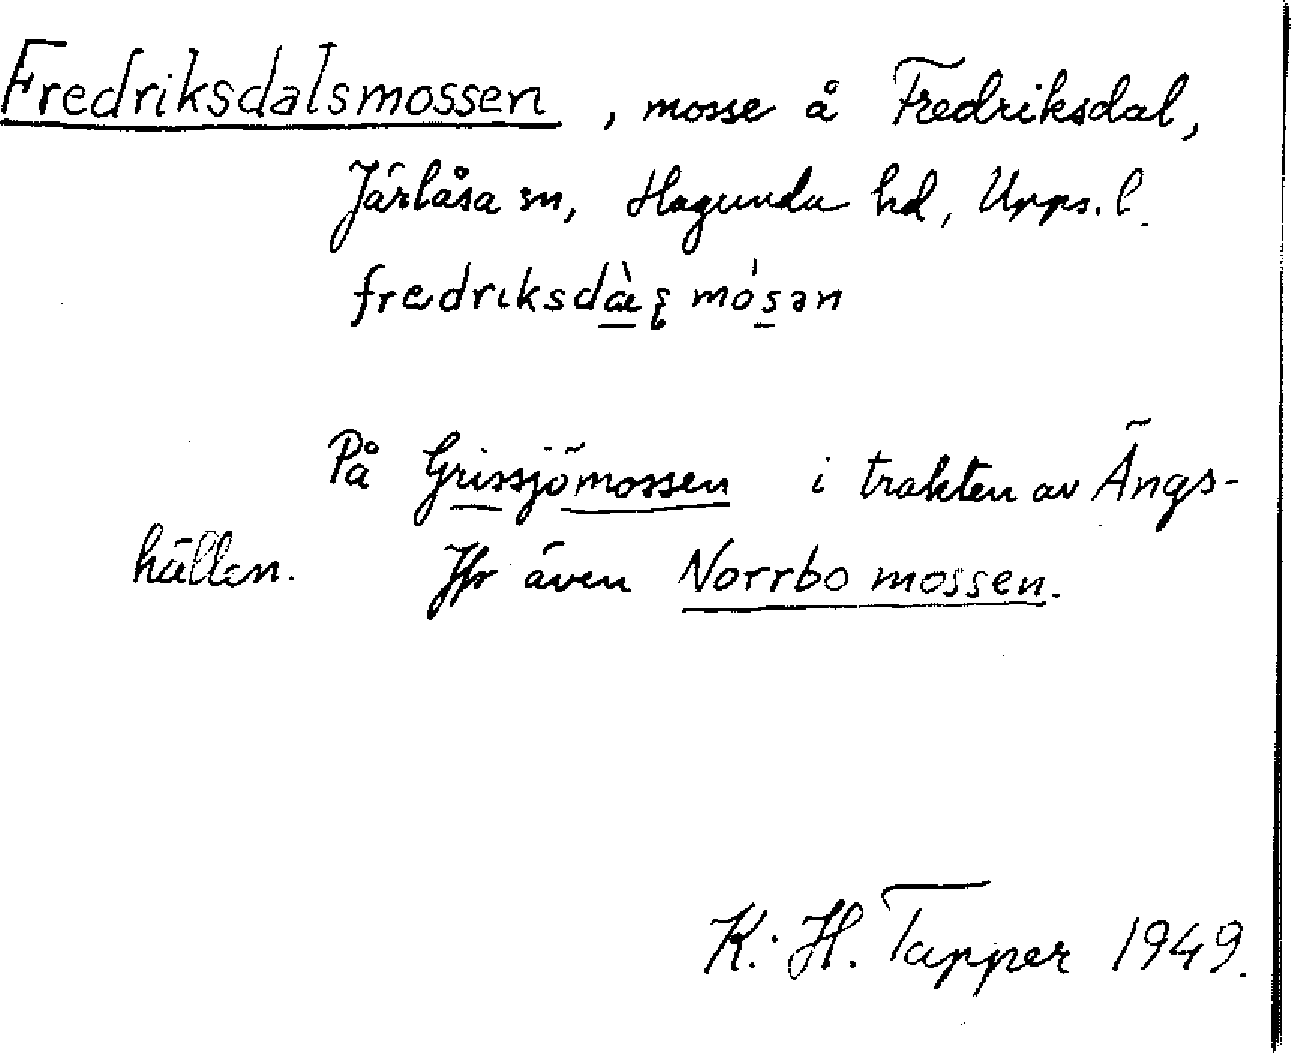 Fredriksdalsmossen, mosse å Fredriksdal,
Järlåsa sn, Hagunda hd, Upps. l.
mósən
På Grissjömossen i trakten av Ängs-
hällen. Jfr även Norrbomossen.
K. H. Tapper 1949.